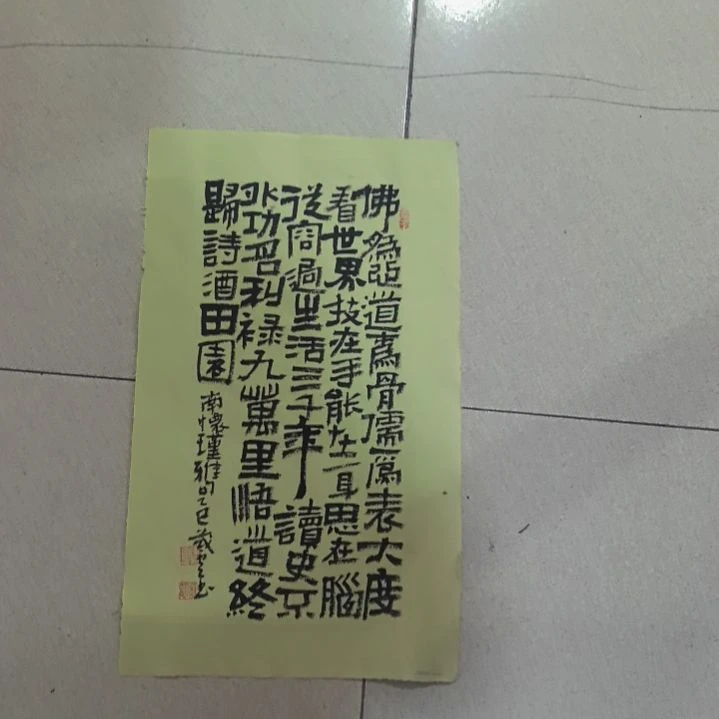 佛為心道為骨儒為表大度
看世界技在手能在身思在腦
從容過生活三千年讀史不
外功名利祿九萬里悟道終
歸詩酒田園
南懷瑾雅句乙巳歲書